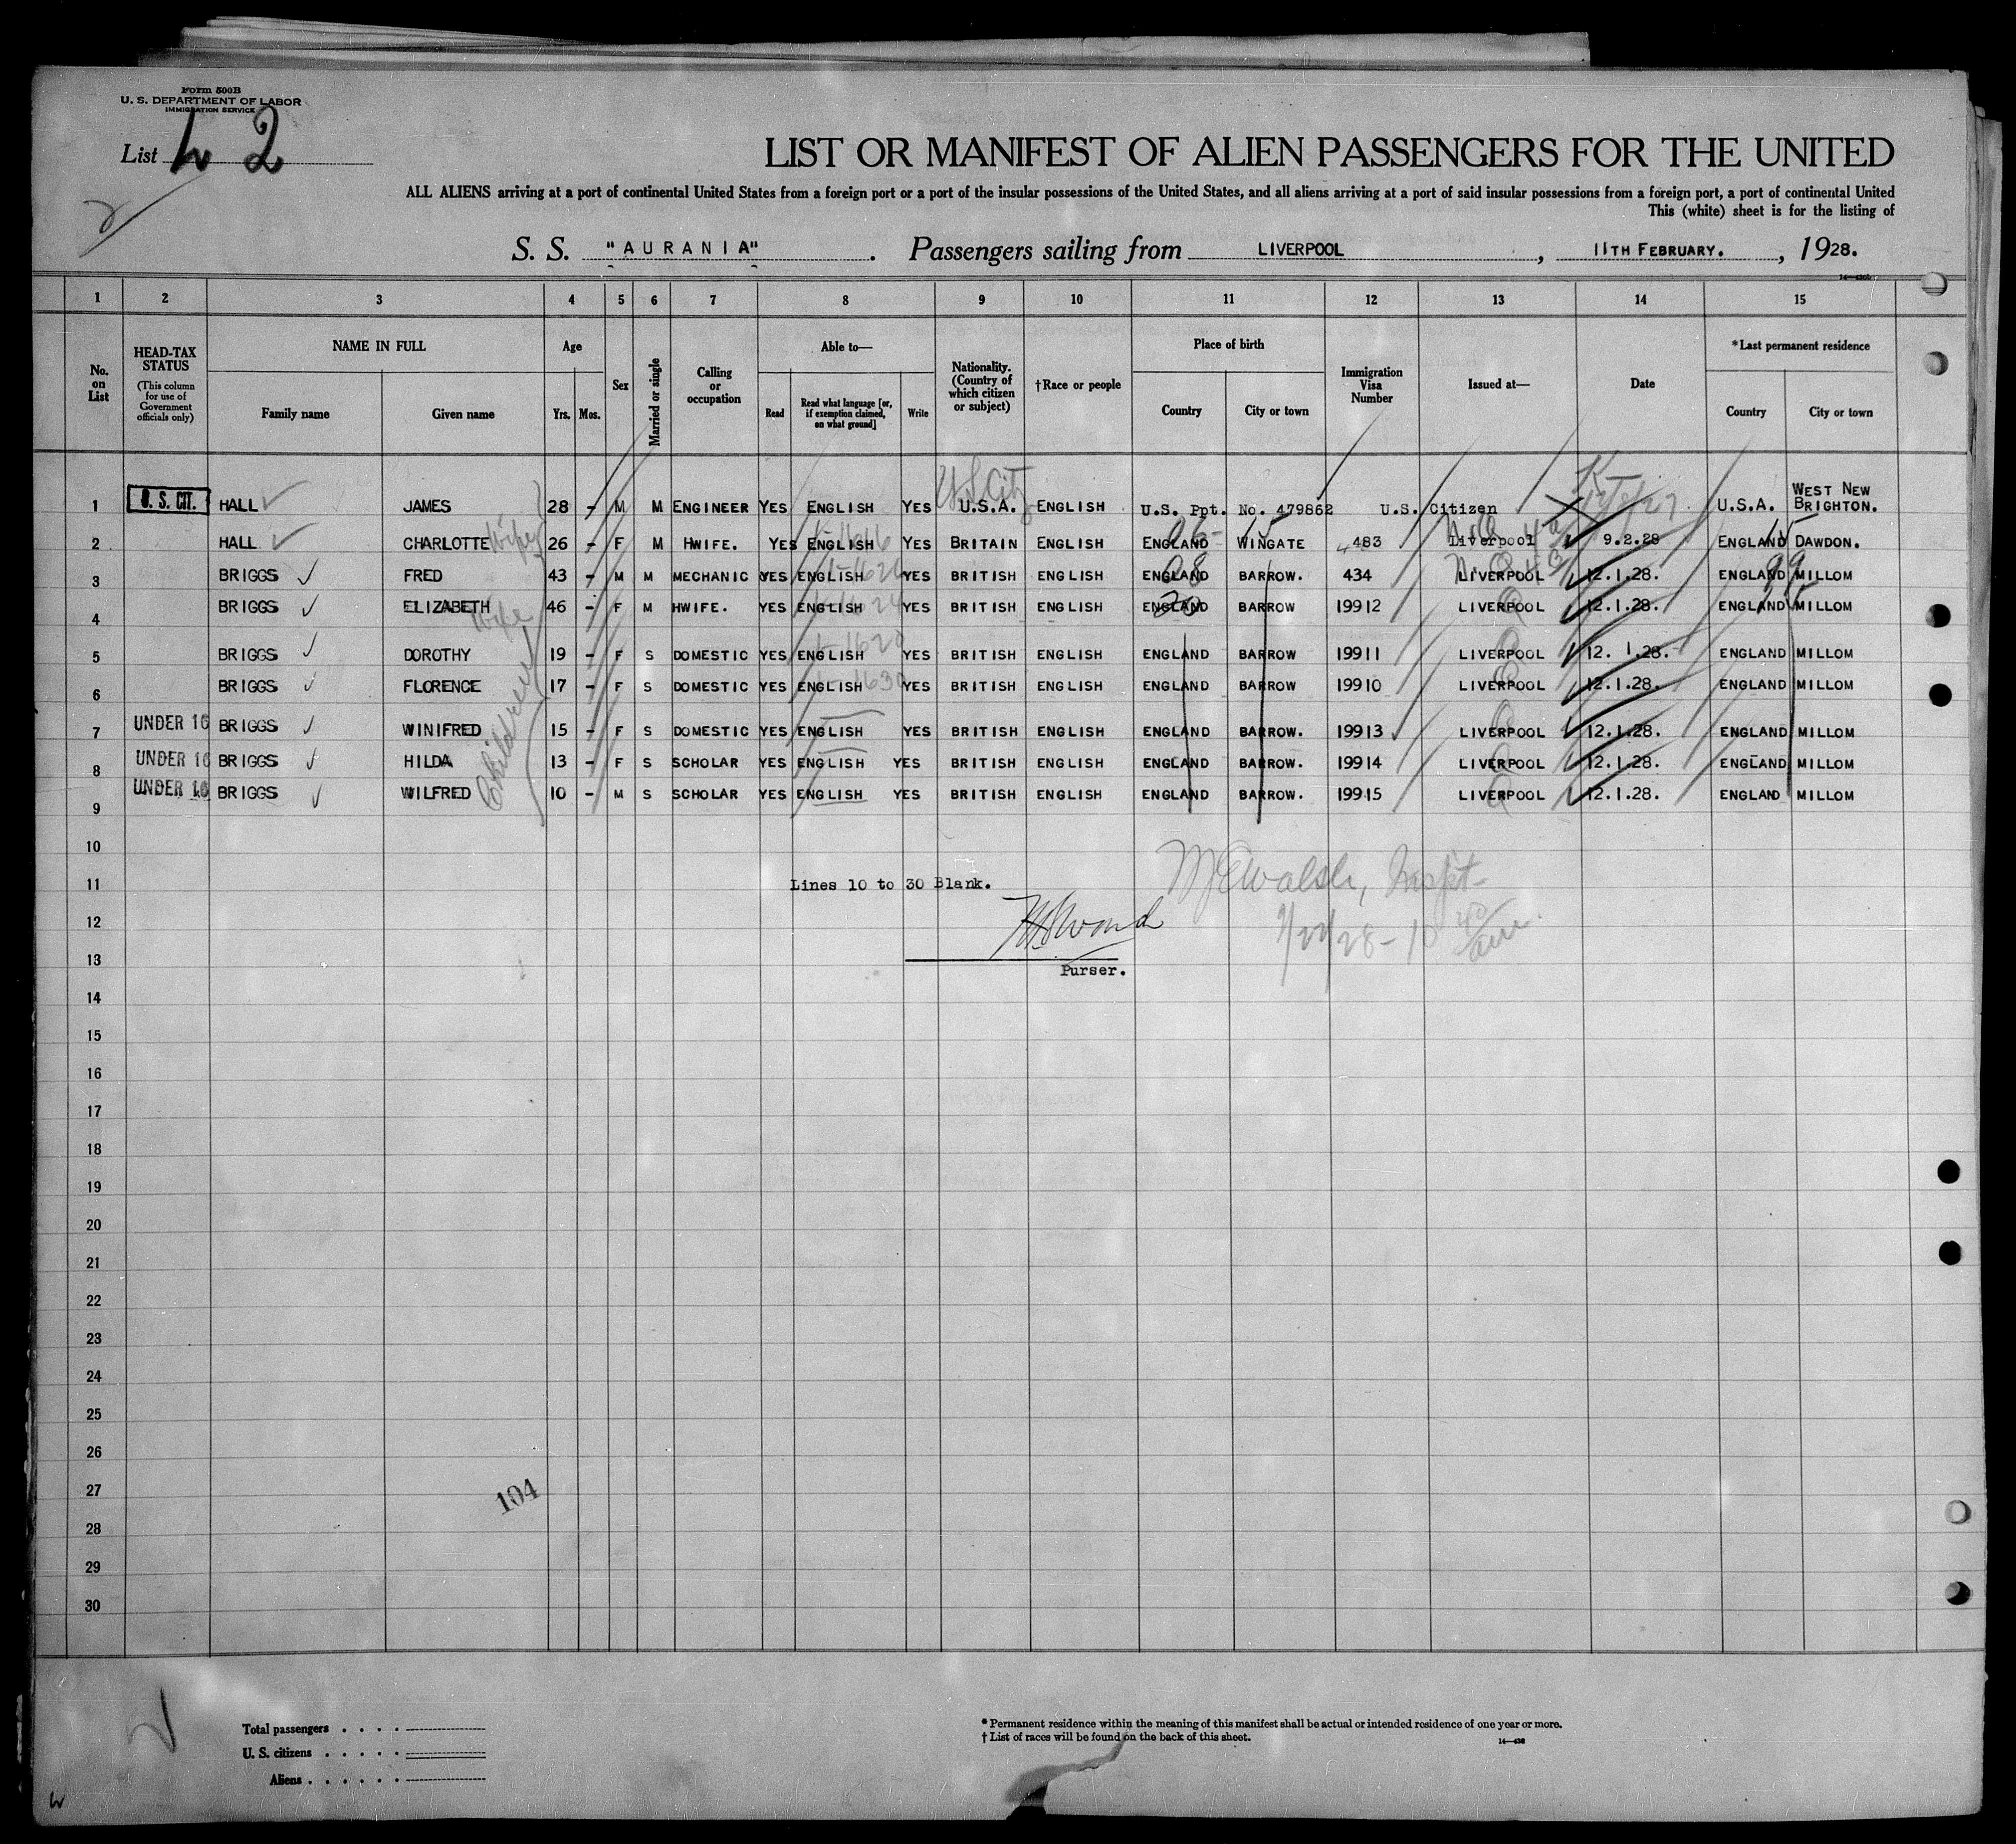 Form 500B
U. S. DEPARTMENT OF LABOR
IMMIGRATION SERVICE
List 2
2
LIST OR MANIFEST OF ALIEN PASSENGERS FOR THE UNITED
ALL ALIENS arriving at a port of continental United States from a foreign port or a port of the insular possessions of the United States, and all aliens arriving at a port of said insular possessions from a foreign port, a port of continental United
This (white) sheet is for the listing of
S. S. "AURANIA". Passengers sailing from LIVERPOOL, 11TH FEBRUARY., 1928.
1 2 3 4 5 6 7 8 9 10 11 12 13 14 15
No. on List
HEAD-TAX STATUS (This column for use of Government officials only)
NAME IN FULL
Family name Given name
Age
Yrs. Mos.
Sex
Married or single
Calling or occupation
Able to—
Read Read what language [or, if exemption claimed, on what ground] Write
Nationality. (Country of which citizen or subject)
†Race or people
Place of birth
Country City or town
Immigration Visa Number
Issued at—
Date
*Last permanent residence
Country City or town
1 U. S. CIT. HALL JAMES 28 - M M ENGINEER YES ENGLISH YES U.S.A. ENGLISH U.S. Ppt. No. 479862 U.S. Citizen U.S.A. WEST NEW BRIGHTON.
U S Citz
2 HALL CHARLOTTE wife 26 - F M HWIFE. YES ENGLISH YES BRITAIN ENGLISH ENGLAND WINGATE 483 Liverpool 9.2.28 ENGLAND DAWDON.
3 BRIGGS FRED 43 - M M MECHANIC YES ENGLISH YES BRITISH ENGLISH ENGLAND BARROW. 434 LIVERPOOL 12.1.28. ENGLAND MILLOM
4 BRIGGS ELIZABETH wife 46 - F M HWIFE. YES ENGLISH YES BRITISH ENGLISH ENGLAND BARROW 19912 LIVERPOOL 12.1.28. ENGLAND MILLOM
5 BRIGGS DOROTHY 19 - F S DOMESTIC YES ENGLISH YES BRITISH ENGLISH ENGLAND BARROW 19911 LIVERPOOL 12. 1.28. ENGLAND MILLOM
6 BRIGGS FLORENCE 17 - F S DOMESTIC YES ENGLISH YES BRITISH ENGLISH ENGLAND BARROW 19910 LIVERPOOL 12.1.28. ENGLAND MILLOM
Children
7 UNDER 16 BRIGGS WINIFRED 15 - F S DOMESTIC YES ENGLISH YES BRITISH ENGLISH ENGLAND BARROW. 19913 LIVERPOOL 12.1.28. ENGLAND MILLOM
8 UNDER 16 BRIGGS HILDA 13 - F S SCHOLAR YES ENGLISH YES BRITISH ENGLISH ENGLAND BARROW. 19914 LIVERPOOL 12.1.28. ENGLAND MILLOM
9 UNDER 16 BRIGGS WILFRED 10 - M S SCHOLAR YES ENGLISH YES BRITISH ENGLISH ENGLAND BARROW. 19915 LIVERPOOL 12.1.28. ENGLAND MILLOM
10
11 Lines 10 to 30 Blank.
Walsh, Inspt
12
13
Purser.
14
15
16
17
18
19
20
21
22
23
24
25
26
27
104
28
29
30
Total passengers . . . .
U. S. citizens . . . . .
Aliens . . . . . .
* Permanent residence within the meaning of this manifest shall be actual or intended residence of one year or more.
† List of races will be found on the back of this sheet.